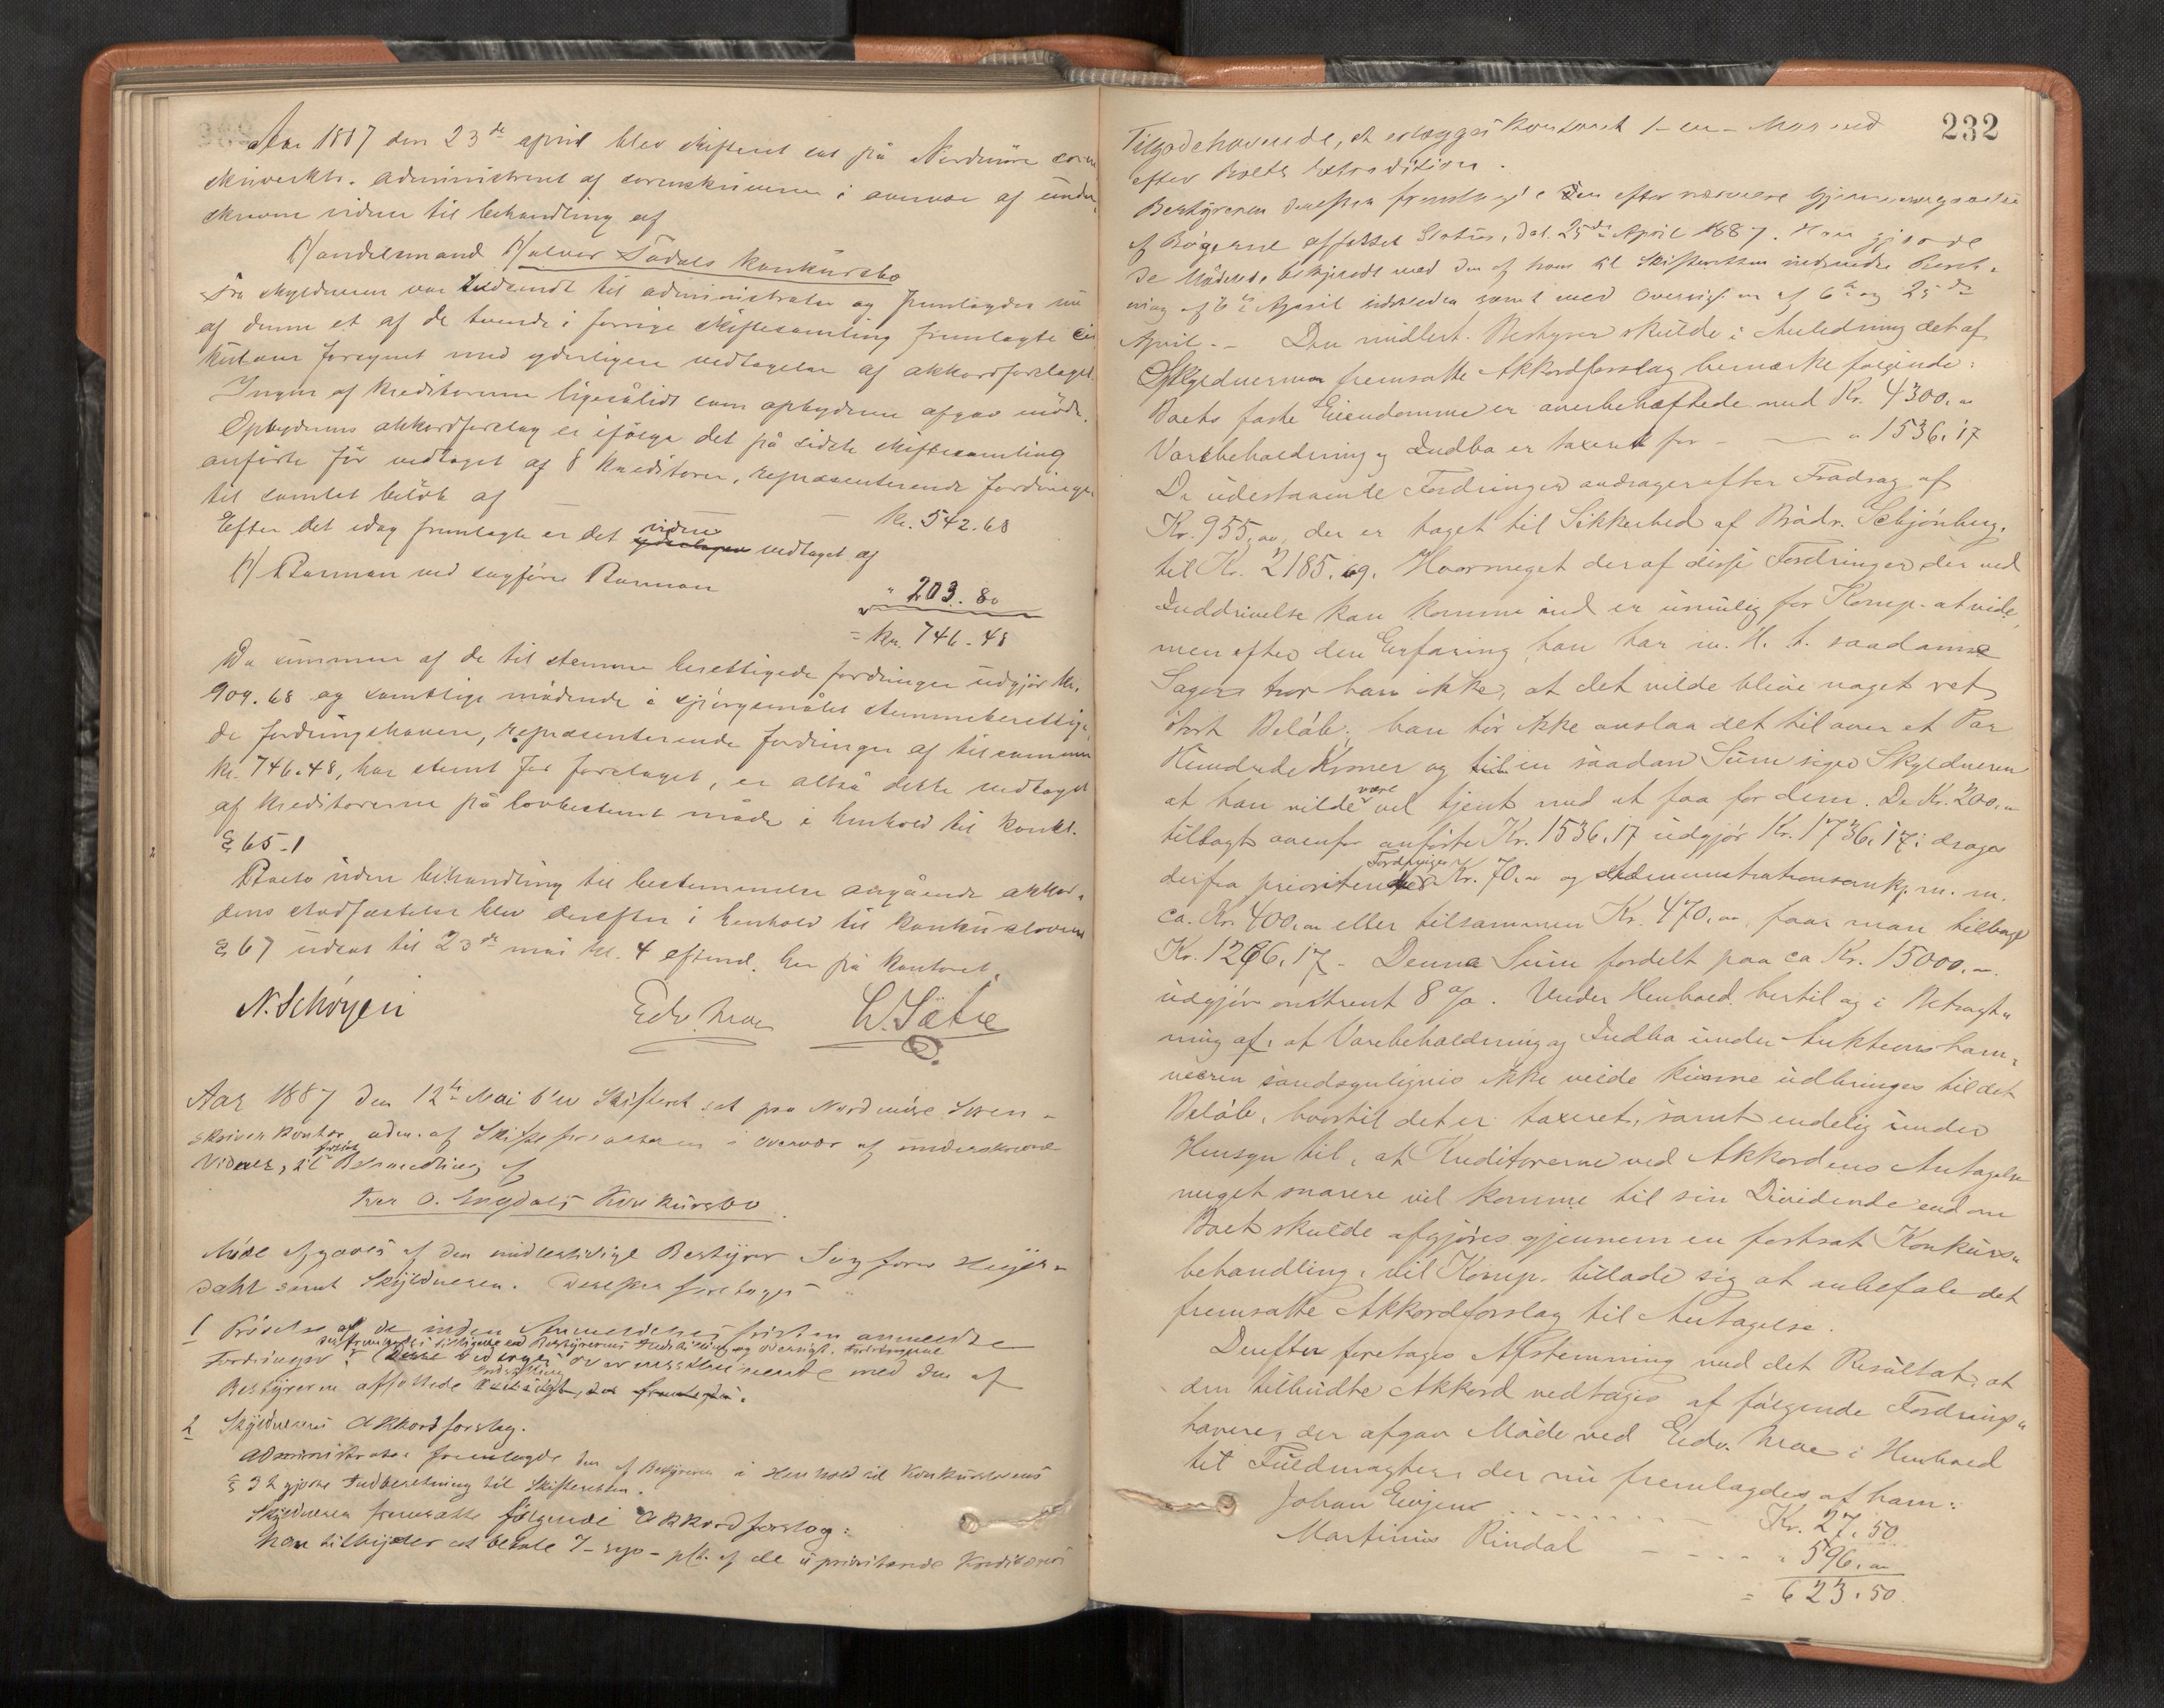 Aar 1887 den 23de april blev skifteret sat på Nordmöre soren
skriverktr. administreret af sorenskriveren i overvær af under-
skrevne vidner til behandling af
Handelsmand Halvor Sødals konkursbo
Fra skyldneren var indsendt til administrator og fremlagdes nu
af denne et af de tvende i forrige skiftesamling fremlagte cir-
kulærer foregnet med yderligere vedtagelse af akkordforslaget.
Ingen af kreditorerne ligesålidt som opbyderen afgav möde.
Opbyderens akkordforslag er ifölge det på sidste skiftesamling
anförte för vedtaget af 8 kreditorer, repræsenterende fordringer
til samlet belöb af — kr. 542.68
Efter det idag fremlagte er det videre vedtaget af
H Barman ved sagförer Barman
" 203.80
= kr. 746.48
Da summen af de til stemme berettigede fordringer udgjör kr.
909.68 og samtlige mödende i spörgsmålet stemmeberettige-
de fordringshavere, repræsenterende fordringer af tilsammen
kr. 746.48, har stemt for forslaget, er altså dette vedtaget
af kreditorerne på lovbestemt måde i henhold til konkl.
§ 65-1
Boets videre behandling til bestemmelse angående akkor-
dens stadfæstelse blev derefter i henhold til konkurslovens
§ 67 udsat til 23de mai kl. 4 eftmd. her på kontoret.
N. Schöyen Edv. Moe L. Sætre
Aar 1887 den 12te Mai blev Skifteret sat paa Nordmöre Soren-
skriverkontor, adm. af Skifteforvalteren i Overvær af underskrevne
Vidner, til fortsat Behandling af
Iver O. Engdals Konkursbo.
Möde afgaves af den midlertidige Bestyrer Sagförer Heyer-
dahl samt Skyldneren. Derefter foretoges
1 Prövelse af de inden Anmeldelsesfristen anmeldte
Fordringer
Bestyreren affattede
2 Skyldnerens Akkordforslag.
Administrator fremlagde den af Bestyreren i Henhold til Konkurslovens
§ gjorte Indberetning til Skifteretten.
Skyldneren fremsatte fölgende Akkordforslag:
Han tilbyder at betale 7-syv- pCt. af de uprioriterede Kreditorers
232
Tilgodehavende, at erlægges kontant 1-en- Maaned
efter Boets Extradition.
Bestyreren derefter fremlagde den efter nærmere Gjennemgaaelse
af Bögerne affattet Status, dat. 25de April 1887. Han gjorde
de Mödende bekjendt med den af ham til Skifteretten indsendte Beret-
ning af 6te April sidstleden samt med Oversigten af 6te og 25de
April. – Den midlert. Bestyrer skulde i Anledning det af
Skyldneren fremsatte Akkordforslag bemærke følgende:
Boets faste Eiendomme er overbehæftede med Kr. 4300.00
Varebeholdning og Indbo er taxeret for — " 1536.17
De udestaaende Fordringer andrager efter Fradrag af
Kr. 955.00, der er taget til Sikkerhed af Brödr. Schjönberg,
til Kr. 2185.69. Hvormeget der af disse Fordringer der ved
Inddrivelse kan komme ind er umulig for Komp. at vide,
men efter den Erfaring han har m. H. t. saadanne
Sager tror han ikke, at det vilde blive noget ret
stort Belöb; han tör ikke anslaa det til over et Par
Hundrede Kroner og en saadan Sum siger Skyldneren
at han vilde være vel tjent med at faa for dem. De Kr. 200.00
tillagt ovenfor anförte Kr. 1536.17 udgjör Kr. 1736.17; drages
derfra prioriterede Fordringer Kr. 70.00 og Administrationsomk. m. m.
ca. Kr. 400.00 eller tilsammen Kr. 470.00, faar man tilbage
Kr. 1266.17 – Denne Sum fordelt paa ca Kr. 15000.00
udgjör omtrent 8 %. Under Henhold hertil og i Betragt-
ning af, at Varebeholdning og Indbo under Auktionsham-
meren sandsynligvis ikke vilde kunne udbringes til det
Belöb, hvortil det er taxeret, samt endelig under
Hensyn til, at Kreditorerne ved Akkordens Antagelse
meget snarere vil komme til sin Dividende end om
Boet skulde afgjöres gjennem en fortsat Konkurs-
behandling, vil Komp. tillade sig at anbefale det
fremsatte Akkordforslag til Antagelse.
Derefter foretages Afstemning med det Resultat, at
den tilbudte Akkord vedtoges af fölgende Fordrings-
havere, der afgav Möde ved Edv. Moe i Henhold
til Fuldmagter, der nu fremlagdes af ham:
Johan Evjens ........ — Kr. 27.50
Martinus Rindal — - - - " 596.00
= 623.50